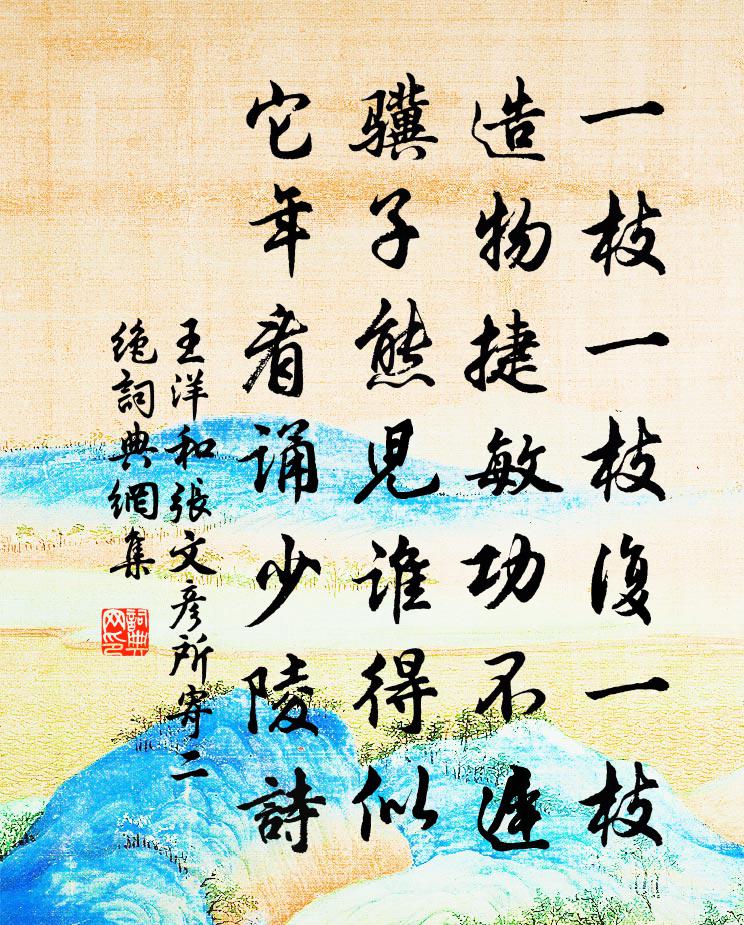 一枝一枝復一枝
造物捷敏功不遲
驥子熊児誰得似
它年看誦少陵詩
王洋和張文彦所寄二
絶詞典網集
詞典
网印